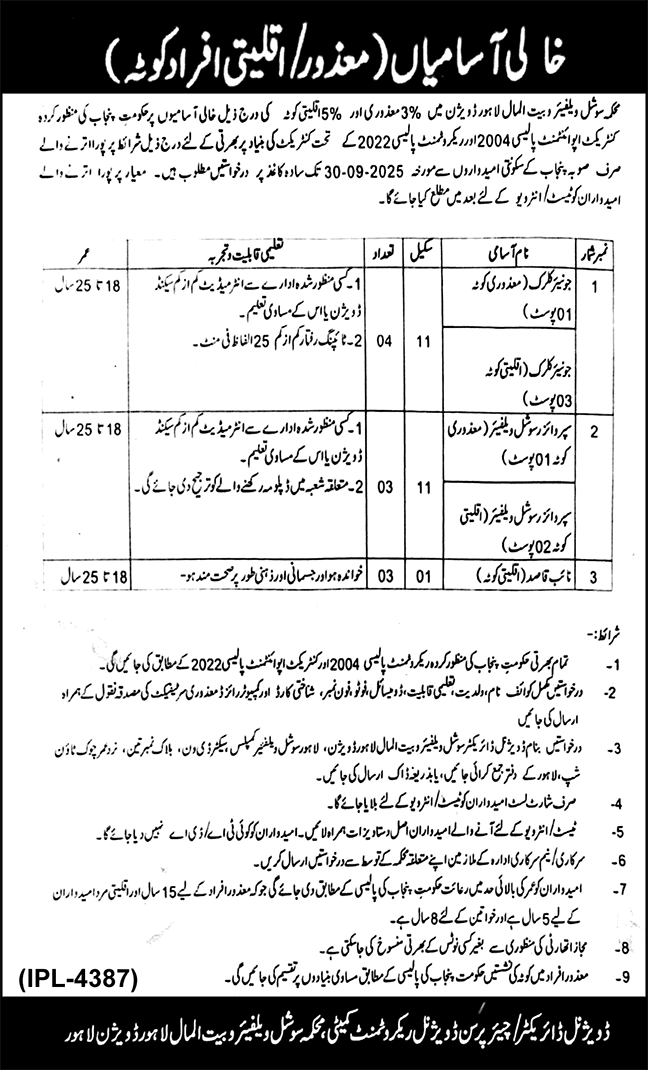 خالی آسامیاں (معذور/اقلیتی افراد کوٹہ)
محکمہ سوشل ویلفیئر و بیت المال لاہور ڈویژن میں 3% معذوری اور 5% اقلیتی کوٹہ کی درج ذیل خالی آسامیوں پر حکومت پنجاب کی منظور کردہ
کنٹریکٹ اپوائنٹمنٹ پالیسی 2004 اور ریکروٹمنٹ پالیسی 2022 کے تحت کنٹریکٹ کی بنیاد پر بھرتی کے لئے درج ذیل شرائط پر پورا اترنے والے
صرف صوبہ پنجاب کے سکونتی امیدواروں سے مورخہ 30-09-2025 تک سادہ کاغذ پر درخواستیں مطلوب ہیں۔ معیار پر پورا اترنے والے
امیدواران کو ٹیسٹ/انٹرویو کے لئے بعد میں مطلع کیا جائے گا۔
نمبر شمار نام آسامی سکیل تعداد تعلیمی قابلیت و تجربہ عمر
1 جونیئر کلرک (معذوری کوٹہ 11 04 1۔ کسی منظور شدہ ادارے سے انٹرمیڈیٹ کم از کم سیکنڈ 18 تا 25 سال
01 پوسٹ) ڈویژن یا اس کے مساوی تعلیم۔
2۔ ٹائپنگ رفتار کم از کم 25 الفاظ فی منٹ۔
جونیئر کلرک (اقلیتی کوٹہ
03 پوسٹ)
2 سپروائزر سوشل ویلفیئر (معذوری 11 03 1۔ کسی منظور شدہ ادارے سے انٹرمیڈیٹ کم از کم سیکنڈ 18 تا 25 سال
کوٹہ 01 پوسٹ) ڈویژن یا اس کے مساوی تعلیم۔
2۔ متعلقہ شعبہ میں ڈپلومہ رکھنے والے کو ترجیح دی جائے گی۔
سپروائزر سوشل ویلفیئر (اقلیتی
کوٹہ 02 پوسٹ)
3 نائب قاصد (اقلیتی کوٹہ) 01 03 خواندہ ہو اور جسمانی اور ذہنی طور پر صحت مند ہو۔ 18 تا 25 سال
شرائط:-
1- تمام بھرتی حکومت پنجاب کی منظور کردہ ریکروٹمنٹ پالیسی 2004 اور کنٹریکٹ اپوائنٹمنٹ پالیسی 2022 کے مطابق کی جائیں گی۔
2- درخواستیں مکمل کوائف نام، ولدیت، تعلیمی قابلیت، ڈومیسائل، فوٹو، فون نمبر، شناختی کارڈ اور کمپیوٹرائزڈ معذوری سرٹیفکیٹ کی مصدقہ نقول کے ہمراہ
ارسال کی جائیں
3- درخواستیں بنام ڈویژنل ڈائریکٹر سوشل ویلفیئر و بیت المال لاہور ڈویژن، لاہور سوشل ویلفیئر کمپلیکس، سیکٹر ڈی ون، بلاک نمبر تین، نزد عمر چوک ٹاؤن
شپ، لاہور کے دفتر جمع کرائی جائیں، یا بذریعہ ڈاک ارسال کی جائیں۔
4- صرف شارٹ لسٹ امیدواران کو ٹیسٹ/انٹرویو کے لئے بلایا جائے گا۔
5- ٹیسٹ/انٹرویو کے لئے آنے والے امیدواران اصل دستاویزات ہمراہ لائیں۔ امیدواران کو کوئی ٹی اے/ڈی اے نہیں دیا جائے گا۔
6- سرکاری/نیم سرکاری ادارہ کے ملازمین اپنے متعلقہ محکمہ کے توسط سے درخواستیں ارسال کریں۔
7- امیدواران کو عمر کی بالائی حد میں رعائت حکومت پنجاب کی پالیسی کے مطابق دی جائے گی جو کہ معذور افراد کے لیے 15 سال اور اقلیتی مرد امیدواران
کے لیے 5 سال ہے اور خواتین کے لئے 8 سال ہے۔
8- مجاز اتھارٹی کی منظوری سے بغیر کسی نوٹس کے بھرتی منسوخ کی جا سکتی ہے۔
9- معذور افراد میں کوٹہ کی نشستیں حکومت پنجاب کی پالیسی کے مطابق مساوی بنیادوں پر تقسیم کی جائیں گی۔
(IPL-4387)
ڈویژنل ڈائریکٹر/چیئر پرسن ڈویژنل ریکروٹمنٹ کمیٹی، محکمہ سوشل ویلفیئر و بیت المال لاہور ڈویژن لاہور